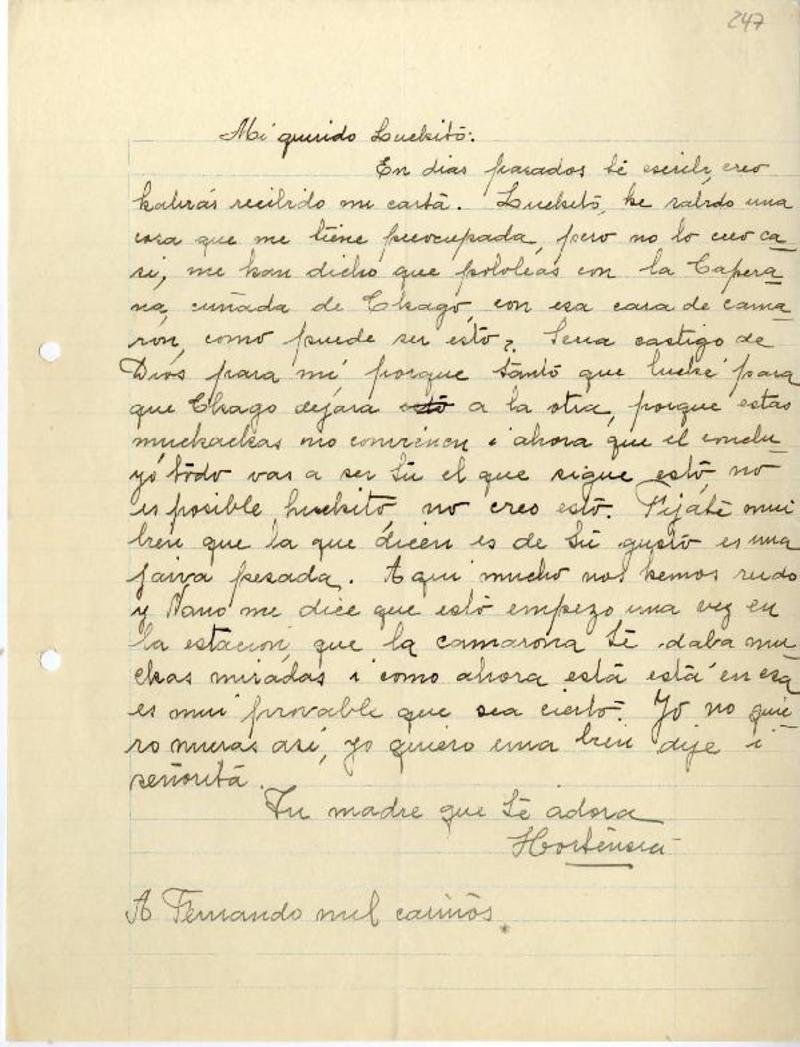 247
Mi querido Luchito:
En dias pasados te escribi, creo
habrás recibido mi carta. Luchito, he sabido una
cosa que me tiene preocupada, pero no lo creo ca_
si, me han dicho que pololeas con la Capera_
na, cuñada de Chago, con esa cara de cama_
rón, como puede ser esto? Seria castigo de
Dios para mi, porque tanto que luché para
que Chago dejara a la otra, porque estas
muchachas no convienen i ahora que el conclu_
yó todo vas a ser tu el que sigue esto, no
es posible Luchito, no creo esto. Fijate mui
bien que la que dicen es de tu gusto es una
jaiva pesada. Aqui mucho nos hemos reido
y Nano me dice que esto empezo una vez en
la estacion, que la camarona te daba mu_
chas miradas i como ahora está está en esa
es mui provable que sea cierto. Yo no quie_
ro nueras asi, yo quiero una bien dije i
señorita.
Tu madre que te adora
Hortensia
A Fernando mil cariños.